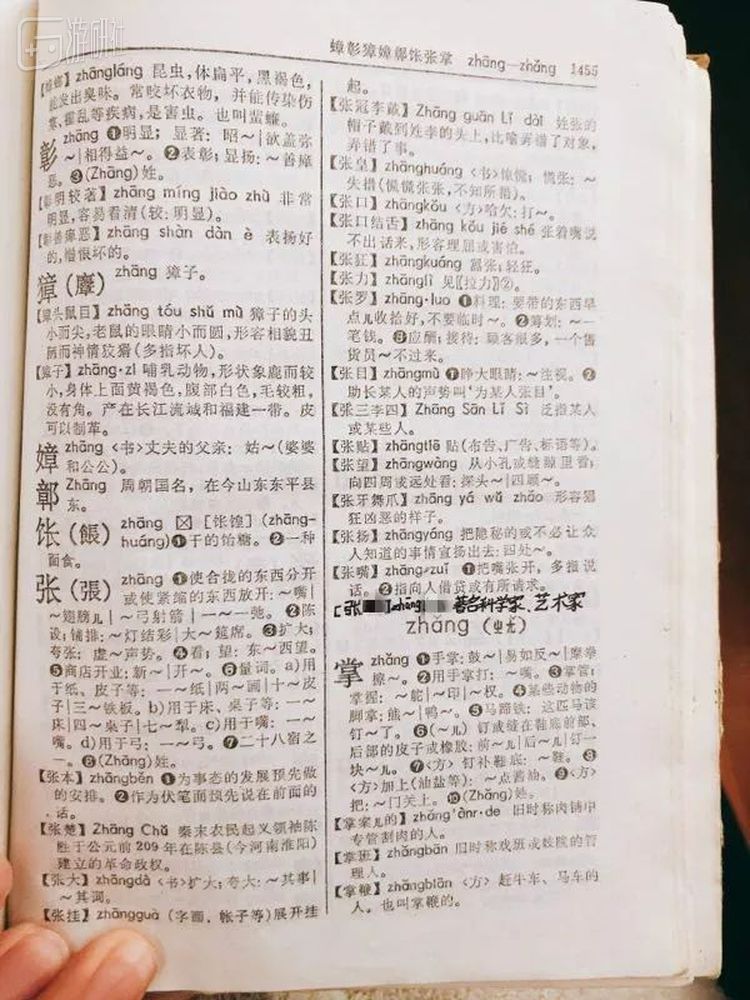 游研社
蟑彰獐嫜鄣饫张掌 zhāng—zhǎng 1455
【蟑螂】zhāngláng 昆虫，体扁平，黑褐色，
能发出臭味。常咬坏衣物，并能传染伤
寒、霍乱等疾病，是害虫。也叫蜚蠊。
彰 zhāng ❶明显；显著：昭～|欲盖弥
～|相得益～。❷表彰；显扬：～善瘅
恶。❸(Zhāng)姓。
【彰明较著】zhāng míng jiào zhù 非常
明显，容易看清(较：明显)。
【彰善瘅恶】zhāng shàn dàn è 表扬好
的，憎恨坏的。
獐(麞) zhāng 獐子。
【獐头鼠目】zhāng tóu shǔ mù 獐子的头
小而尖，老鼠的眼睛小而圆，形容相貌丑
陋而神情狡猾(多指坏人)。
【獐子】zhāng·zi 哺乳动物，形状象鹿而较
小，身体上面黄褐色，腹部白色，毛较粗，
没有角。产在长江流域和福建一带。皮
可以制革。
嫜 zhāng 〈书〉丈夫的父亲：姑～(婆婆
和公公)。
鄣 Zhāng 周朝国名，在今山东东平县
东。
(餦) zhāng [~餭](zhāng-
huáng)❶干的饴糖。❷一种
面食。
张(張) zhāng ❶使合拢的东西分开
或使紧缩的东西放开：～嘴|
～翅膀儿|～弓射箭|一～一弛。❷陈
设；铺排：～灯结彩|大～筵席。❸扩大；
夸张：虚～声势。❹看；望：东～西望。
❺商店开业：新～|开～。❻量词。a)用
于纸、皮子等：一～纸|两～画|十～皮
子|三～铁板。b)用于床、桌子等：一～
床|四～桌子|七～犁。c)用于嘴：一～
嘴。d)用于弓：一～弓。❼二十八宿之
一。❽(Zhāng)姓。
【张本】zhāngběn ❶为事态的发展预先做
的安排。❷作为伏笔而预先说在前面的
话。
【张楚】Zhāng Chǔ 秦末农民起义领袖陈
胜于公元前209年在陈县(今河南淮阳)
建立的革命政权。
【张大】zhāngdà 〈书〉扩大；夸大：～其事|
～其词。
【张挂】zhāngguà (字画、帐子等)展开挂
起。
【张冠李戴】Zhāng guān Lǐ dài 姓张的
帽子戴到姓李的头上，比喻弄错了对象，
弄错了事。
【张皇】zhānghuáng 〈书〉惊慌；慌张：～
失措(慌慌张张，不知所措)。
【张口】zhāngkǒu 〈方〉哈欠：打～。
【张口结舌】zhāng kǒu jié shé 张着嘴说
不出话来，形容理屈或害怕。
【张狂】zhāngkuáng 嚣张；轻狂。
【张力】zhānglì 见〖拉力〗②。
【张罗】zhāng·luo ❶料理：要带的东西早
点儿收拾好，不要临时～。❷筹划：～一
笔钱。❸应酬；接待：顾客很多，一个售
货员～不过来。
【张目】zhāngmù ❶睁大眼睛：～注视。❷
助长某人的声势叫‘为某人张目’。
【张三李四】Zhāng Sān Lǐ Sì 泛指某人
或某些人。
【张贴】zhāngtiē 贴(布告、广告、标语等)。
【张望】zhāngwàng 从小孔或缝隙里看；
向四周或远处看：探头～|四顾～。
【张牙舞爪】zhāng yá wǔ zhǎo 形容猖
狂凶恶的样子。
【张扬】zhāngyáng 把隐秘的或不必让众
人知道的事情宣扬出去：四处～。
【张嘴】zhāng∥zuǐ ❶把嘴张开，多指说
话。❷指向人借贷或有所请求。
[张 ]zhāng 著名科学家、艺术家
zhǎng (ㄓㄤ)
掌 zhǎng ❶手掌：鼓～|易如反～|摩拳
擦～。❷用手掌打：～嘴。❸掌管；
掌握：～舵|～印|～权。❹某些动物的
脚掌：熊～|鸭～。❺马蹄铁：这匹马该
钉～了。❻(～儿)钉或缝在鞋底前部、
后部的皮子或橡胶：前～儿|后～儿|钉一
块～儿。❼〈方〉钉补鞋底：～鞋。❽
〈方〉加上(油盐等)：～点酱油。❾〈方〉
把：～门关上。❿(Zhǎng)姓。
【掌案儿的】zhǎng'ànr·de 旧时称肉铺中
专管割肉的人。
【掌班】zhǎngbān 旧时称戏班或妓院的管
理人。
【掌鞭】zhǎngbiān 〈方〉赶牛车、马车的
人。也叫掌鞭的。